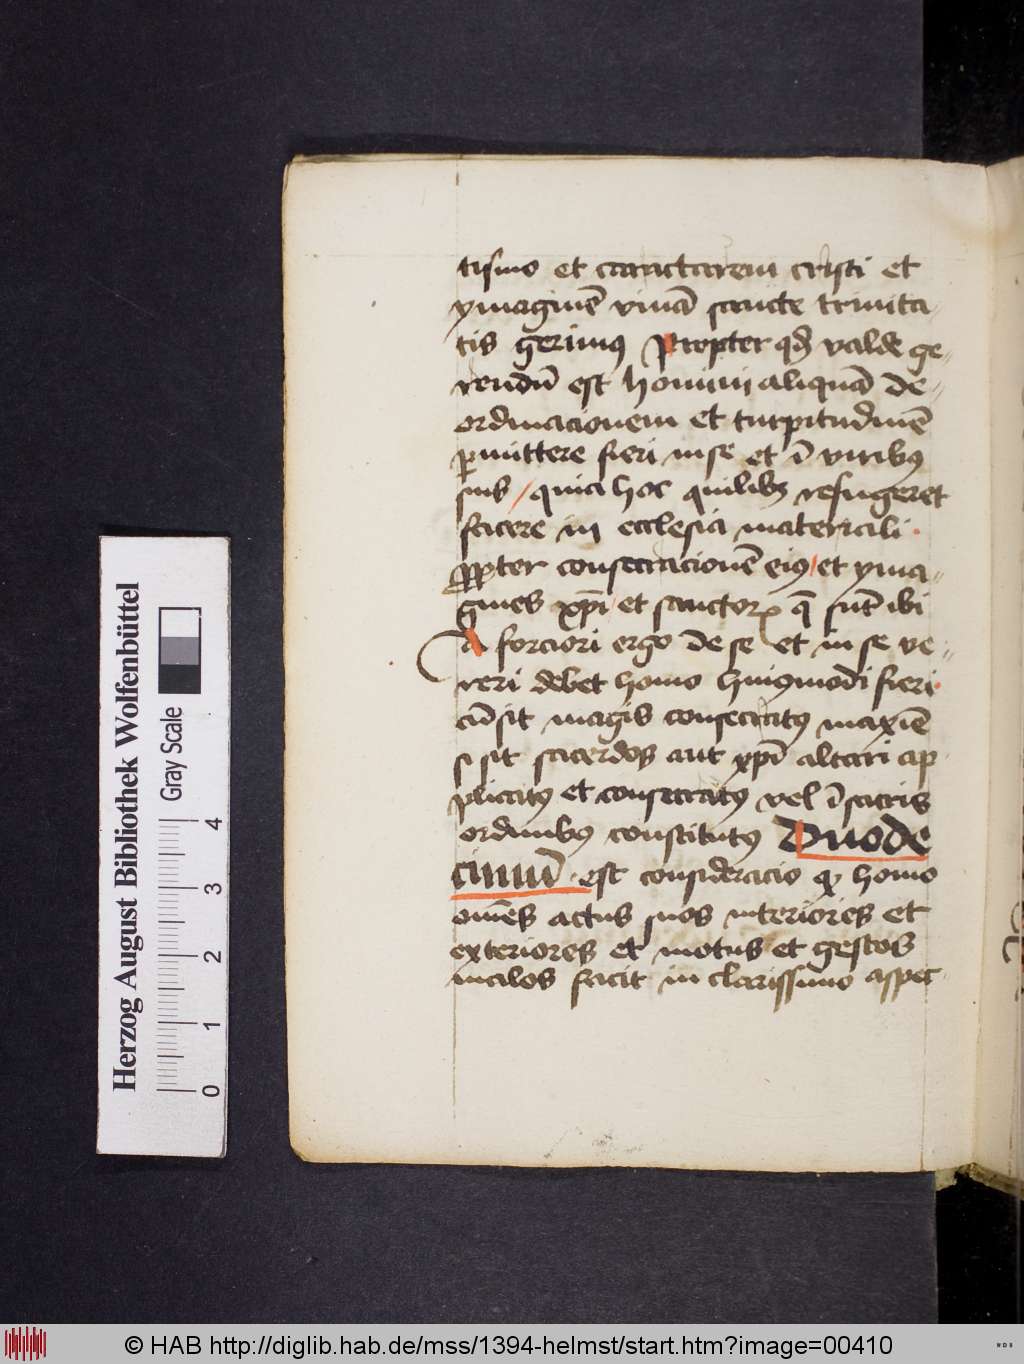 tismo et caractarem cristi et
ymaginē vivā sancte trinita-
tis gerimus Propter qd valde ge-
rendū est homini aliquā de-
ordinacionem et turpitudinē
pmittere fieri in se et ī viribus
suis / quia hoc quilibz refugeret
facere in ecclesia materiali.
ppter consecracionē eius / et yma-
gines xpī / et sanctorꝝ q̄ sūt ibi
A forciori ergo de se et in se ve-
reri debet homo huiusmodi fieri.
cū sit magis consecratus maxīe
si sit sacerdos aut xpī altari ap-
plicatus et consecratus vel ī sacris
ordinibus constitutus Duode
cimū est consideracio qͥ homo
om̄es actus suos interiores et
exteriores et motus et gestos
malos facit in clarissimo aspec-
Herzog August Bibliothek Wolfenbüttel
Gray Scale
0 1 2 3 4
© HAB http://diglib.hab.de/mss/1394-helmst/start.htm?image=00410